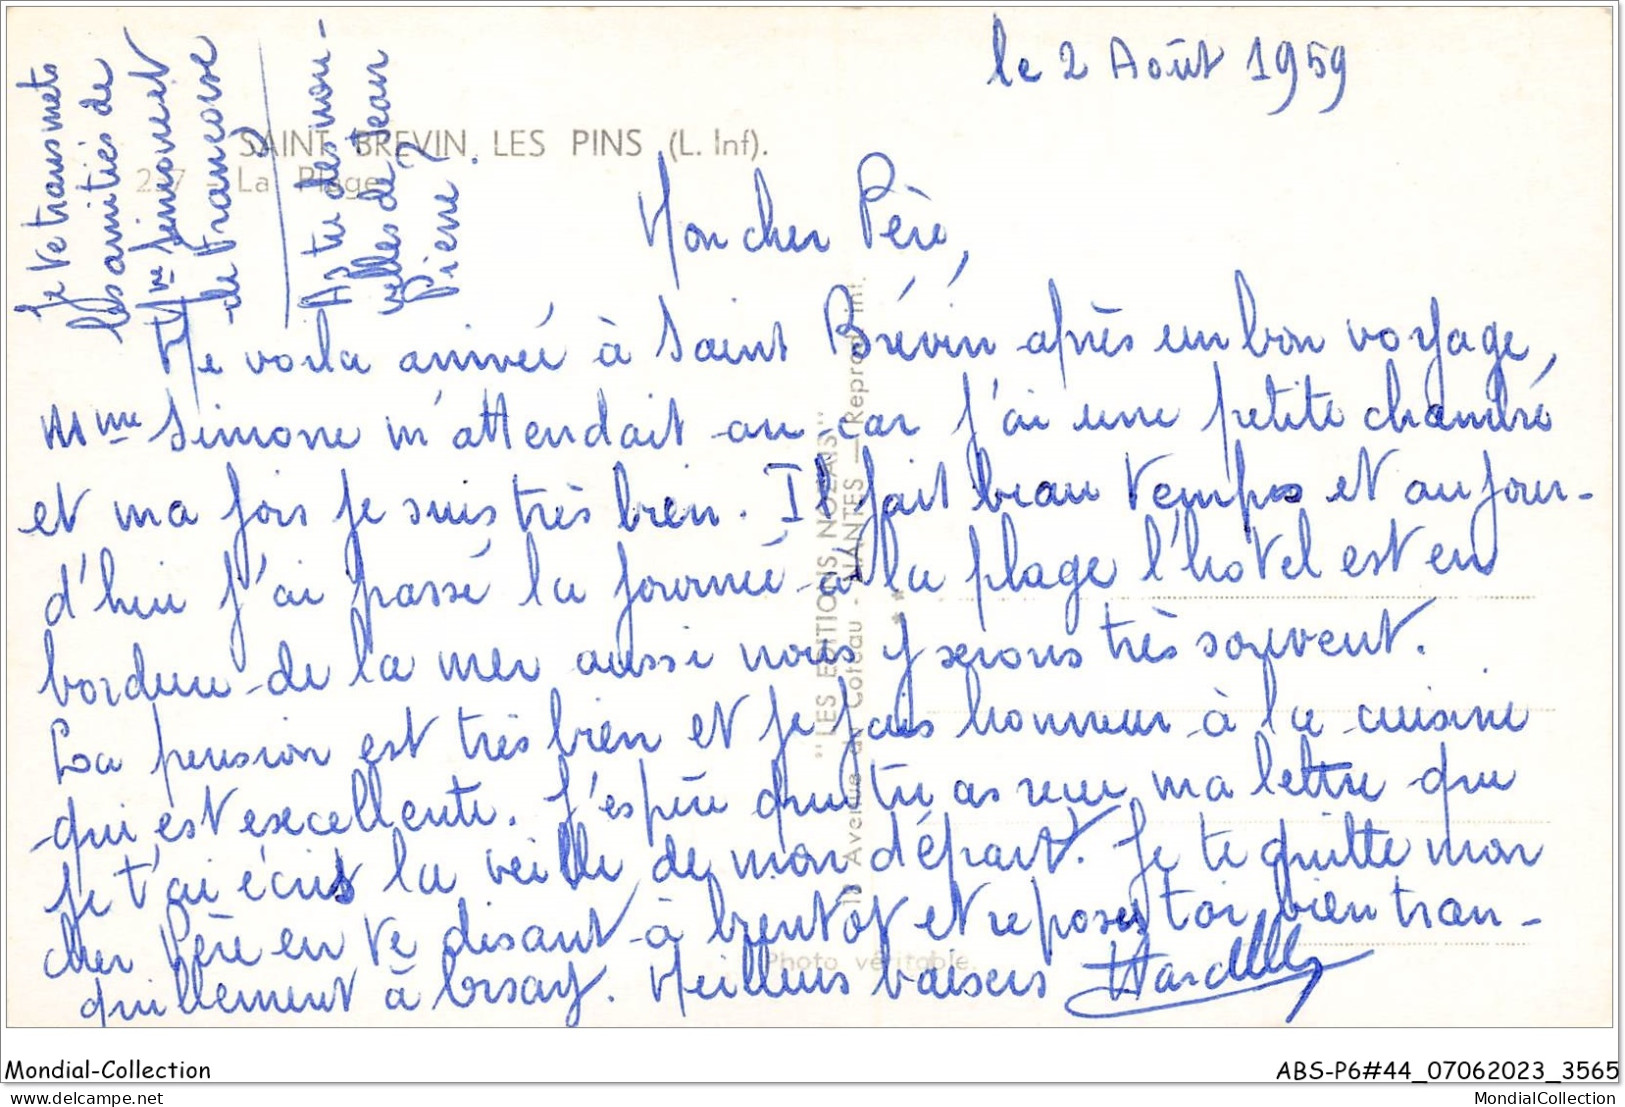 le 2 Août 1959
SAINT BREVIN LES PINS (L. Inf).
La Plage
Je te transmets
les amitiés de
Mme Simone et
de Francoise
As tu des nou-
velles de Jean
Pierre ?
Mon cher Père,
Me voila arrivée à Saint Brévin après un bon voyage,
Mme Simone m'attendait au car j'ai une petite chambre
et ma fois je suis très bien. Il fait beau temps et aujour-
d'hui j'ai passé la journée à la plage l'hotel est en
bordure de la mer aussi nous y serons très souvent.
La pension est très bien et je fais honneur à la cuisine
qui est excellente. J'espère que tu as recu ma lettre que
je t'ai écris la veille de mon départ. Je te quitte mon
cher Père en te disant à bientôt et reposes toi bien tran-
quillement à Orsay. Meilleurs baisers
"LES EDITIONS NOZAIS"
Avenue du Coteau - NANTES — (Reprod. int.
Photo véritable
Mondial-Collection
ABS-P6#44_07062023_3565
delcampe.net
MondialCollection